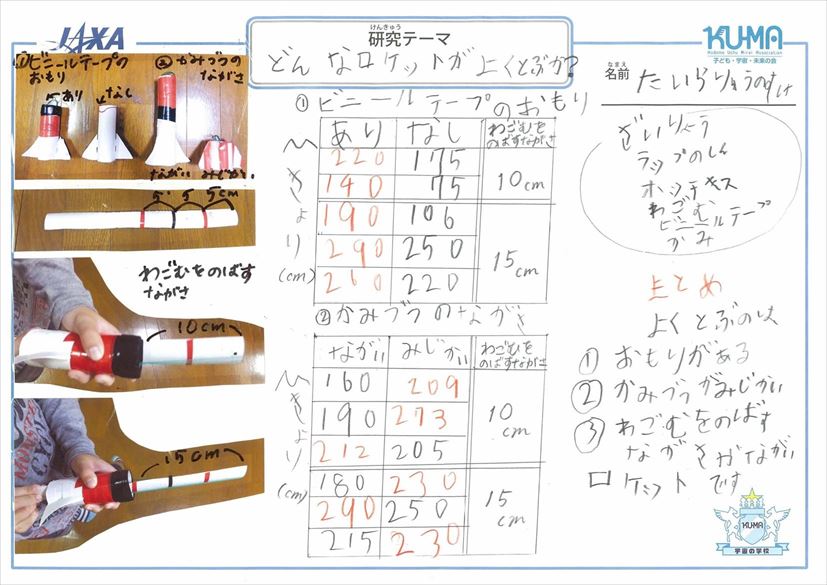 JAXA
けんきゅう
研究テーマ
どんなロケットがよくとぶか?
KU-MA
Kodomo Uchu Mirai Association
子ども・宇宙・未来の会
なまえ
名前
たいらりょうのすけ
①ビニールテープの
おもり
あり
なし
②かみづつの
ながさ
ながい
みじかい
5 5 5cm
わごむをのばす
ながさ
10cm
15cm
①ビニールテープのおもり
ひきょり(cm)
あり なし わごむを
のばすながさ
220 175
140 75
10cm
190 106
290 250
260 220
15cm
②かみづつのながさ
ひきょり(cm)
ながい みじかい わごむを
のばすながさ
160 209
190 273
212 205
10cm
180 230
290 250
215 230
15cm
ざいりょう
ラップのしん
ホッチキス
わごむ
ビニールテープ
かみ
まとめ
よくとぶのは
①おもりがある
②かみづつがみじかい
③わごむをのばす
ながさがながい
ロケットです
KUMA
宇宙の学校